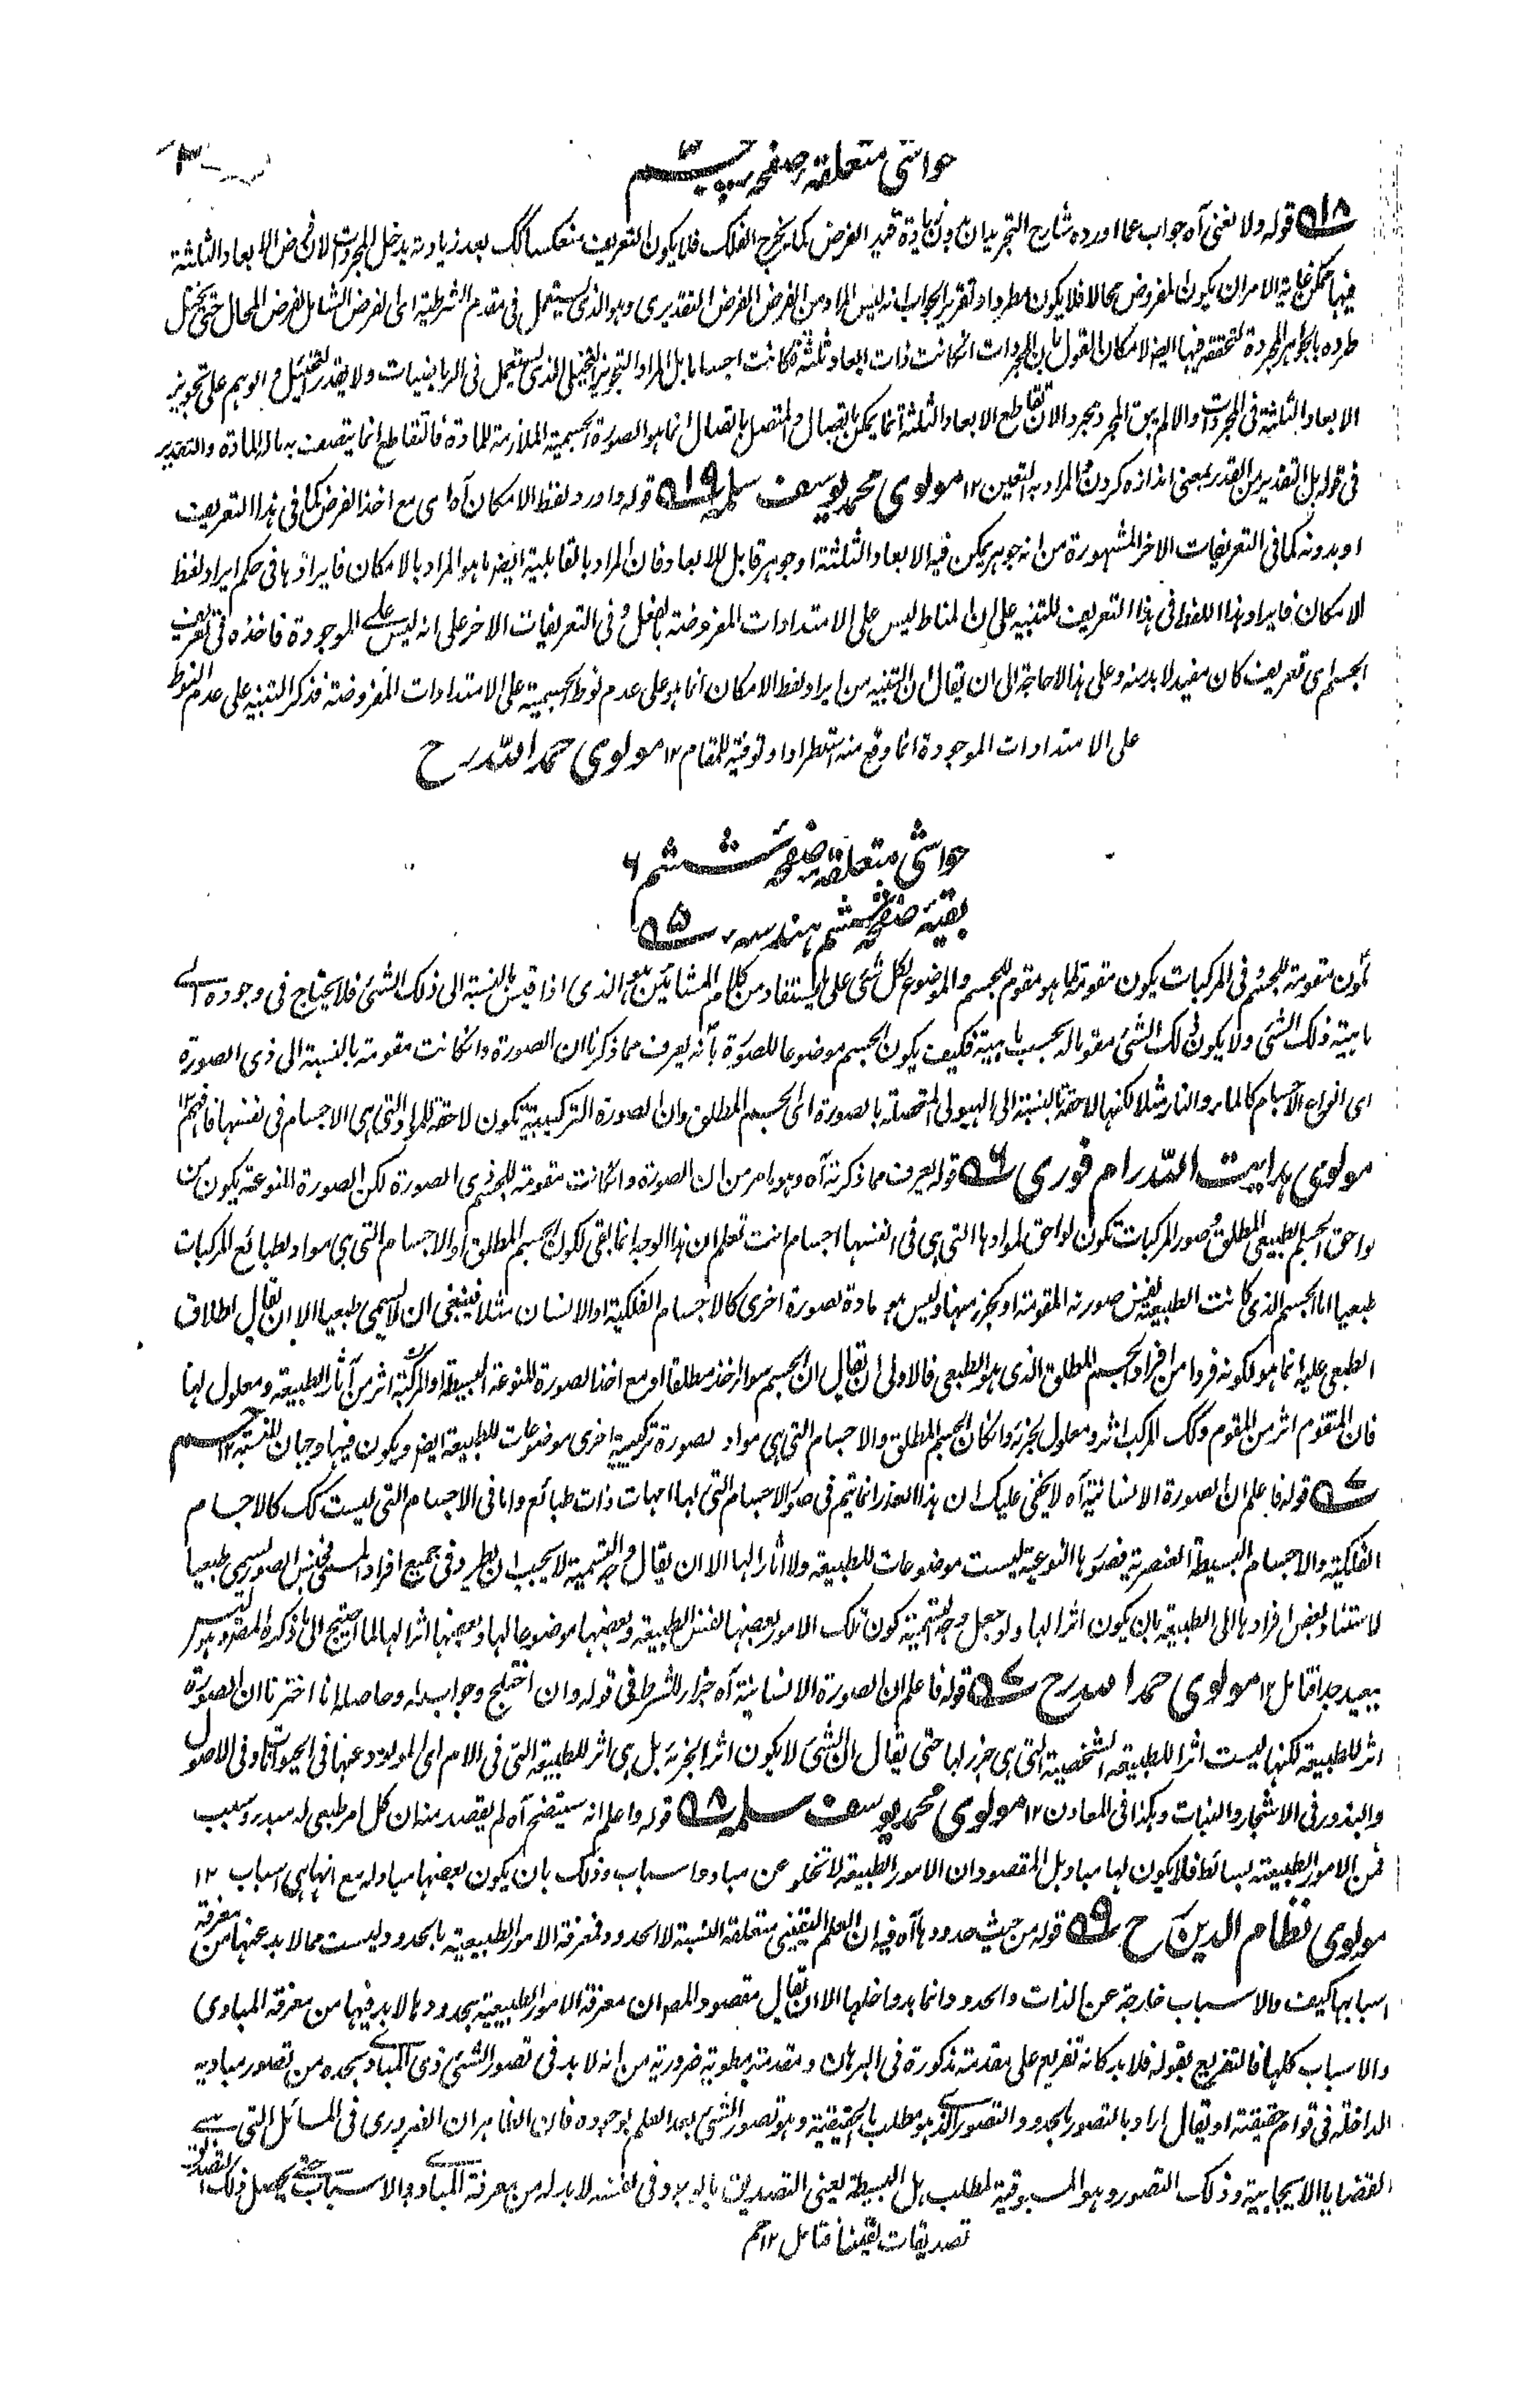 حواشی متعلقہ صفحہ بیستم
۱۸ قوله ولا نعنی آه جواب عما اورده شارح التجرید ان بدون زیادة قید الفرض کما یخرج الفلک فلا یکون التعریف منعکسا کک بعد زیادته یدخل المجردات لان فرض الابعاد الثلثة
فیها ممکن غایة الامر ان یکون المفروض محالا فلا یکون مطردا وتقریر الجواب انه لیس المراد من الفرض الفرض التقدیری وهو الذی یستعمل فی مقدم الشرطیة ای الفرض الشامل لفرض المحال حتی یختل
طرده بالجواهر المجردة لتحققه فیها ایضا لامکان القول بان المجردات ان کانت ذات ابعاد ثلثة کانت اجساما بل المراد التجویز التخییلی الذی یستعمل فی الریاضیات ولا یقدر التخییل والوهم علی تجویز
الابعاد الثلثة فی المجردات والا لم یبق المجرد مجردا لان تقاطع الابعاد الثلثة انما یمکن باتصال والمتصل باتصال انما هو الصورة الجسمیة الملازمة للمادة فالتقاطع انما یتصف به ماله المادة والتقدیر
فی قوله بل التقدیر من القدر بمعنی اندازه کردن والمراد به التعین ۱۲ مولوی محمد یوسف سلمه ۱۹ قوله واورد لفظ الامکان آه ای مع اخذ الفرض کما فی هذا التعریف
او بدونه کما فی التعریفات الاخر المشهورة من انه جوهر یمکن فیه الابعاد الثلثة او جوهر قابل للابعاد فان المراد بالقابلیة ایضا ما هو المراد بالامکان فایرادها فی حکم ایراد لفظ
الامکان فایراد هذا اللفظ فی هذا التعریف للتنبیه علی ان المناط لیس علی الامتدادات المفروضة بالفعل وفی التعریفات الاخر علی انه لیس علی الموجودة فاخذه فی تعریف
الجسم ای تعریف کان مفید لا بد منه وعلی هذا لا حاجة الی ان یقال ان التنبیه من ایراد لفظ الامکان انما هو علی عدم نوط الجسمیة علی الامتدادات المفروضة فذکر التنبیه علی عدم النوط
علی الامتدادات الموجودة انما وقع منه استطرادا وتوفیة للمقام ۱۲ مولوی حمد الله رح
حواشی متعلقہ صفحہ ششم ۶
بقیہ صفحہ ششم ہندسہ ۵
تکون مقومة للجسم وفی المرکبات یکون مقومة لما هو مقوم للجسم والموضوع لکل شیٔ علی ما یستفاد من کلام المشائین هو الذی اذا قیس بالنسبة الی ذلک الشیٔ فلا یحتاج فی وجوده الی
ماهیة ذلک الشیٔ ولا یکون ذلک الشیٔ مقوما له بحسب ماهیته فکیف یکون الجسم موضوعا للصورة بانه یعرف مما ذکرنا ان الصورة وان کانت مقومة بالنسبة الی ذی الصورة
ای انواع الاجسام کالماء والنار مثلا لکنها لاحقة بالنسبة الی الهیولی المتحصلة بالصورة ای الجسم المطلق وان الصورة الترکیبیة تکون لاحقة للمواد التی هی الاجسام فی نفسها فافهم ۱۲
مولوی ہدایت اللہ رامفوری ۶ قوله یعرف مما ذکرته آه وهو ما مر من ان الصورة وان کانت مقومة للجسم ذی الصورة لکن الصورة المنوعة یکون من
لواحق الجسم الطبیعی المطلق وصور المرکبات تکون لواحق لموادها التی هی فی انفسها اجسام انت تعلم ان هذا الوجه انما بقی لکون الجسم المطلق او الاجسام التی هی مواد لطبائع المرکبات
طبعیا اما الجسم الذی کانت الطبیعة نفس صورته المقومة او بجزء منها ولیس هو مادة لصورة اخری کالاجسام الفلکیة او الانسان مثلا فینبغی ان لا یسمی طبعیا الا ان یقال اطلاق
الطبعی علیه انما هو لکونه فردا من افراد الجسم المطلق الذی هو الطبعی فالاولی ان یقال ان الجسم سواء اخذ مطلقا او مع اخذ الصورة المنوعة البسیطة او المرکبة اثر من آثار الطبیعة ومعلول لها
فان المتقوم اثر من المقوم وکک المرکب اثر ومعلول لجزئه وان کان الجسم المطلق والاجسام التی هی مواد لصورة ترکیبیة اخری موضوعات للطبیعة ایضا ویکون فیها وجهان للنسبة ۱۲
۷ قوله فاعلم ان الصورة الانسانیة آه لا یخفی علیک ان هذا العذر انما یتم فی صور الاجسام التی لها امهات ذات طبائع واما فی الاجسام التی لیست کک کالاجسام
الفلکیة والاجسام البسیطة العنصریة فصورها النوعیة لیست موضوعات للطبیعة ولا آثارا لها الا ان یقال وجه التسمیة لا یجب ان یطرد فی جمیع افراد المسمی فجنس الصور یسمی طبعیا
لاستناد بعض افرادها الی الطبیعة بان یکون اثرا لها ولو جعل وجه التسمیة کون تلک الامور بعضها نفس الطبیعة وبعضها موضوعا لها وبعضها اثرا لها لما احتیج الی ما ذکره المصنف وهو لیس
ببعید جدا فتأمل ۱۲ مولوی حمد اللہ رح ۷ قوله فاعلم ان الصورة الانسانیة آه جزاء للشرط فی قوله وان اختلج وجواب له وحاصله انا اخترنا ان الصورة
اثر للطبیعة لکنها لیست اثرا للطبیعة الشخصیة التی هی جزء لها حتی یقال ان الشیٔ لا یکون اثرا لجزئه بل هی اثر للطبیعة التی فی الام ای المولود عنها فی الحیوانات وفی الاصول
والبذور فی الاشجار والنبات وهکذا فی المعادن ۱۲ مولوی محمد یوسف سلمه ۸ قوله واعلم انه سیتضح آه لم یقصد منه ان کل امر طبعی له مبدء وسبب
فمن الامور الطبیعیة بسائط فلا یکون لها مباد بل المقصود ان الامور الطبیعة لا تخلو عن مباد واسباب وذلک بان یکون بعضها مبادله مع انها هی اسباب ۱۲
مولوی نظام الدین رح ۹ قوله من حیث حدودها آه فیه ان العلم الیقینی متعلقه النسبة لا الحدود فمعرفة الامور الطبیعیة بالحدود لیست مما لا بد عنها من معرفة
اسبابها کیف والاسباب خارجة عن الذات والحدود انما بدواخلها الا ان یقال مقصود المصـ ان معرفة الامور الطبیعیة بحدودها لا بد فیها من معرفة المبادی
والاسباب کلها فالتفریع بقوله فلا بد کانه تفریع علی مقدمة مذکورة فی البرهان ومقدمة مطویة ضروریة من انه لا بد فی تصور الشیٔ ذی المبادی بحده من تصور مبادیه
الداخلة فی قوام حقیقته او یقال اراد بالتصور بالحدود التصور الذی هو مطلب ما الحقیقیة وهو تصور الشیٔ بعد العلم بوجوده فان الظاهر ان الضروری فی المسائل التی هی
القضایا الایجابیة وذلک التصور وهو المسبوقیة لمطلب هل البسیطة یعنی التصدیق بالوجود فی نفسه لا بد له من معرفة المبادی والاسباب حتی یحصل ذلک التصدیق
تصدیقات یقینا فتأمل ۱۲